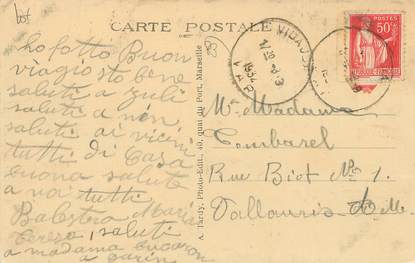 CARTE POSTALE
lot
ho fatto Buon
viagio sto bene
saluti a zuli
saluti a nin
saluti ai vicini
tutti di casa
buona salute
a noi tutti
Balestra Maria
Teresa, saluti
a madama
a
A. Tardy, Photo-Edit., 49, quai du Port, Marseille
VIDAUBAN
VAR
1934
POSTES
50c
Me Madama
Combarel
Rue Biot No 1
Vallauris A.M.